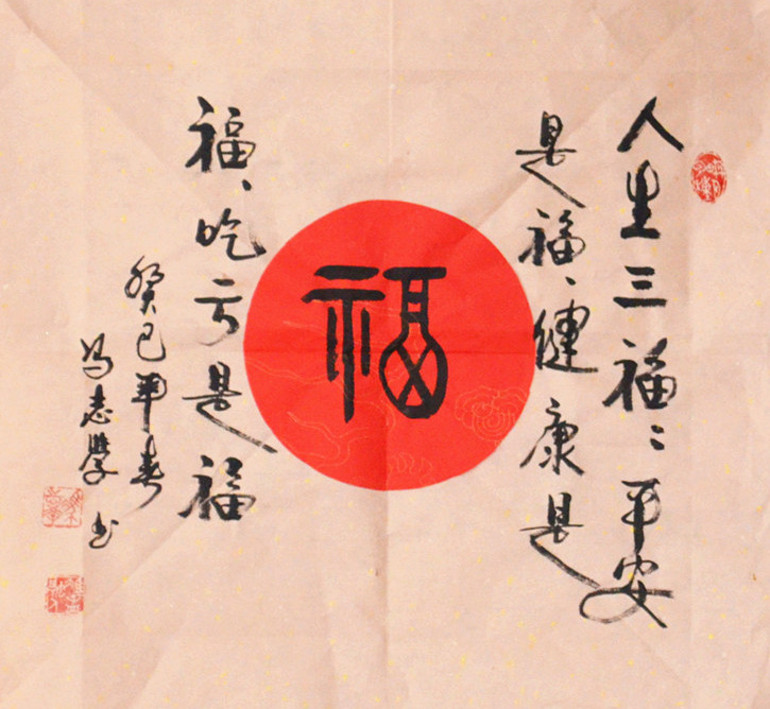 人生三福：平安
是福、健康是
福
福、吃亏是福
癸巳早春
冯志學书